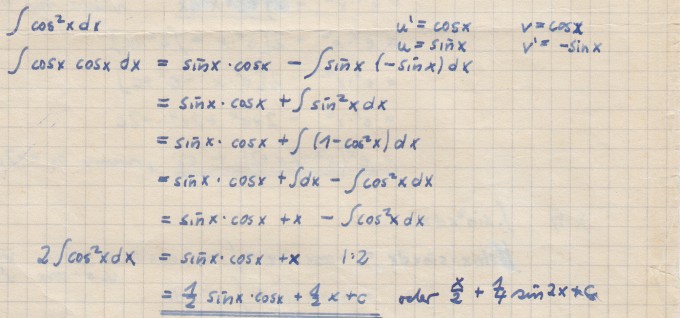 ∫ cos²x dx u' = cosx v = cosx
u = sinx v' = -sinx
∫ cosx cosx dx = sinx · cosx - ∫ sinx (-sinx) dx
= sinx · cosx + ∫ sin²x dx
= sinx · cosx + ∫ (1-cos²x) dx
= sinx · cosx + ∫dx - ∫cos²x dx
= sinx · cosx + x - ∫cos²x dx
2 ∫cos²x dx = sinx · cosx + x |:2
= 1/2 sinx · cosx + 1/2 x + c oder x/2 + 1/4 sin 2x + c